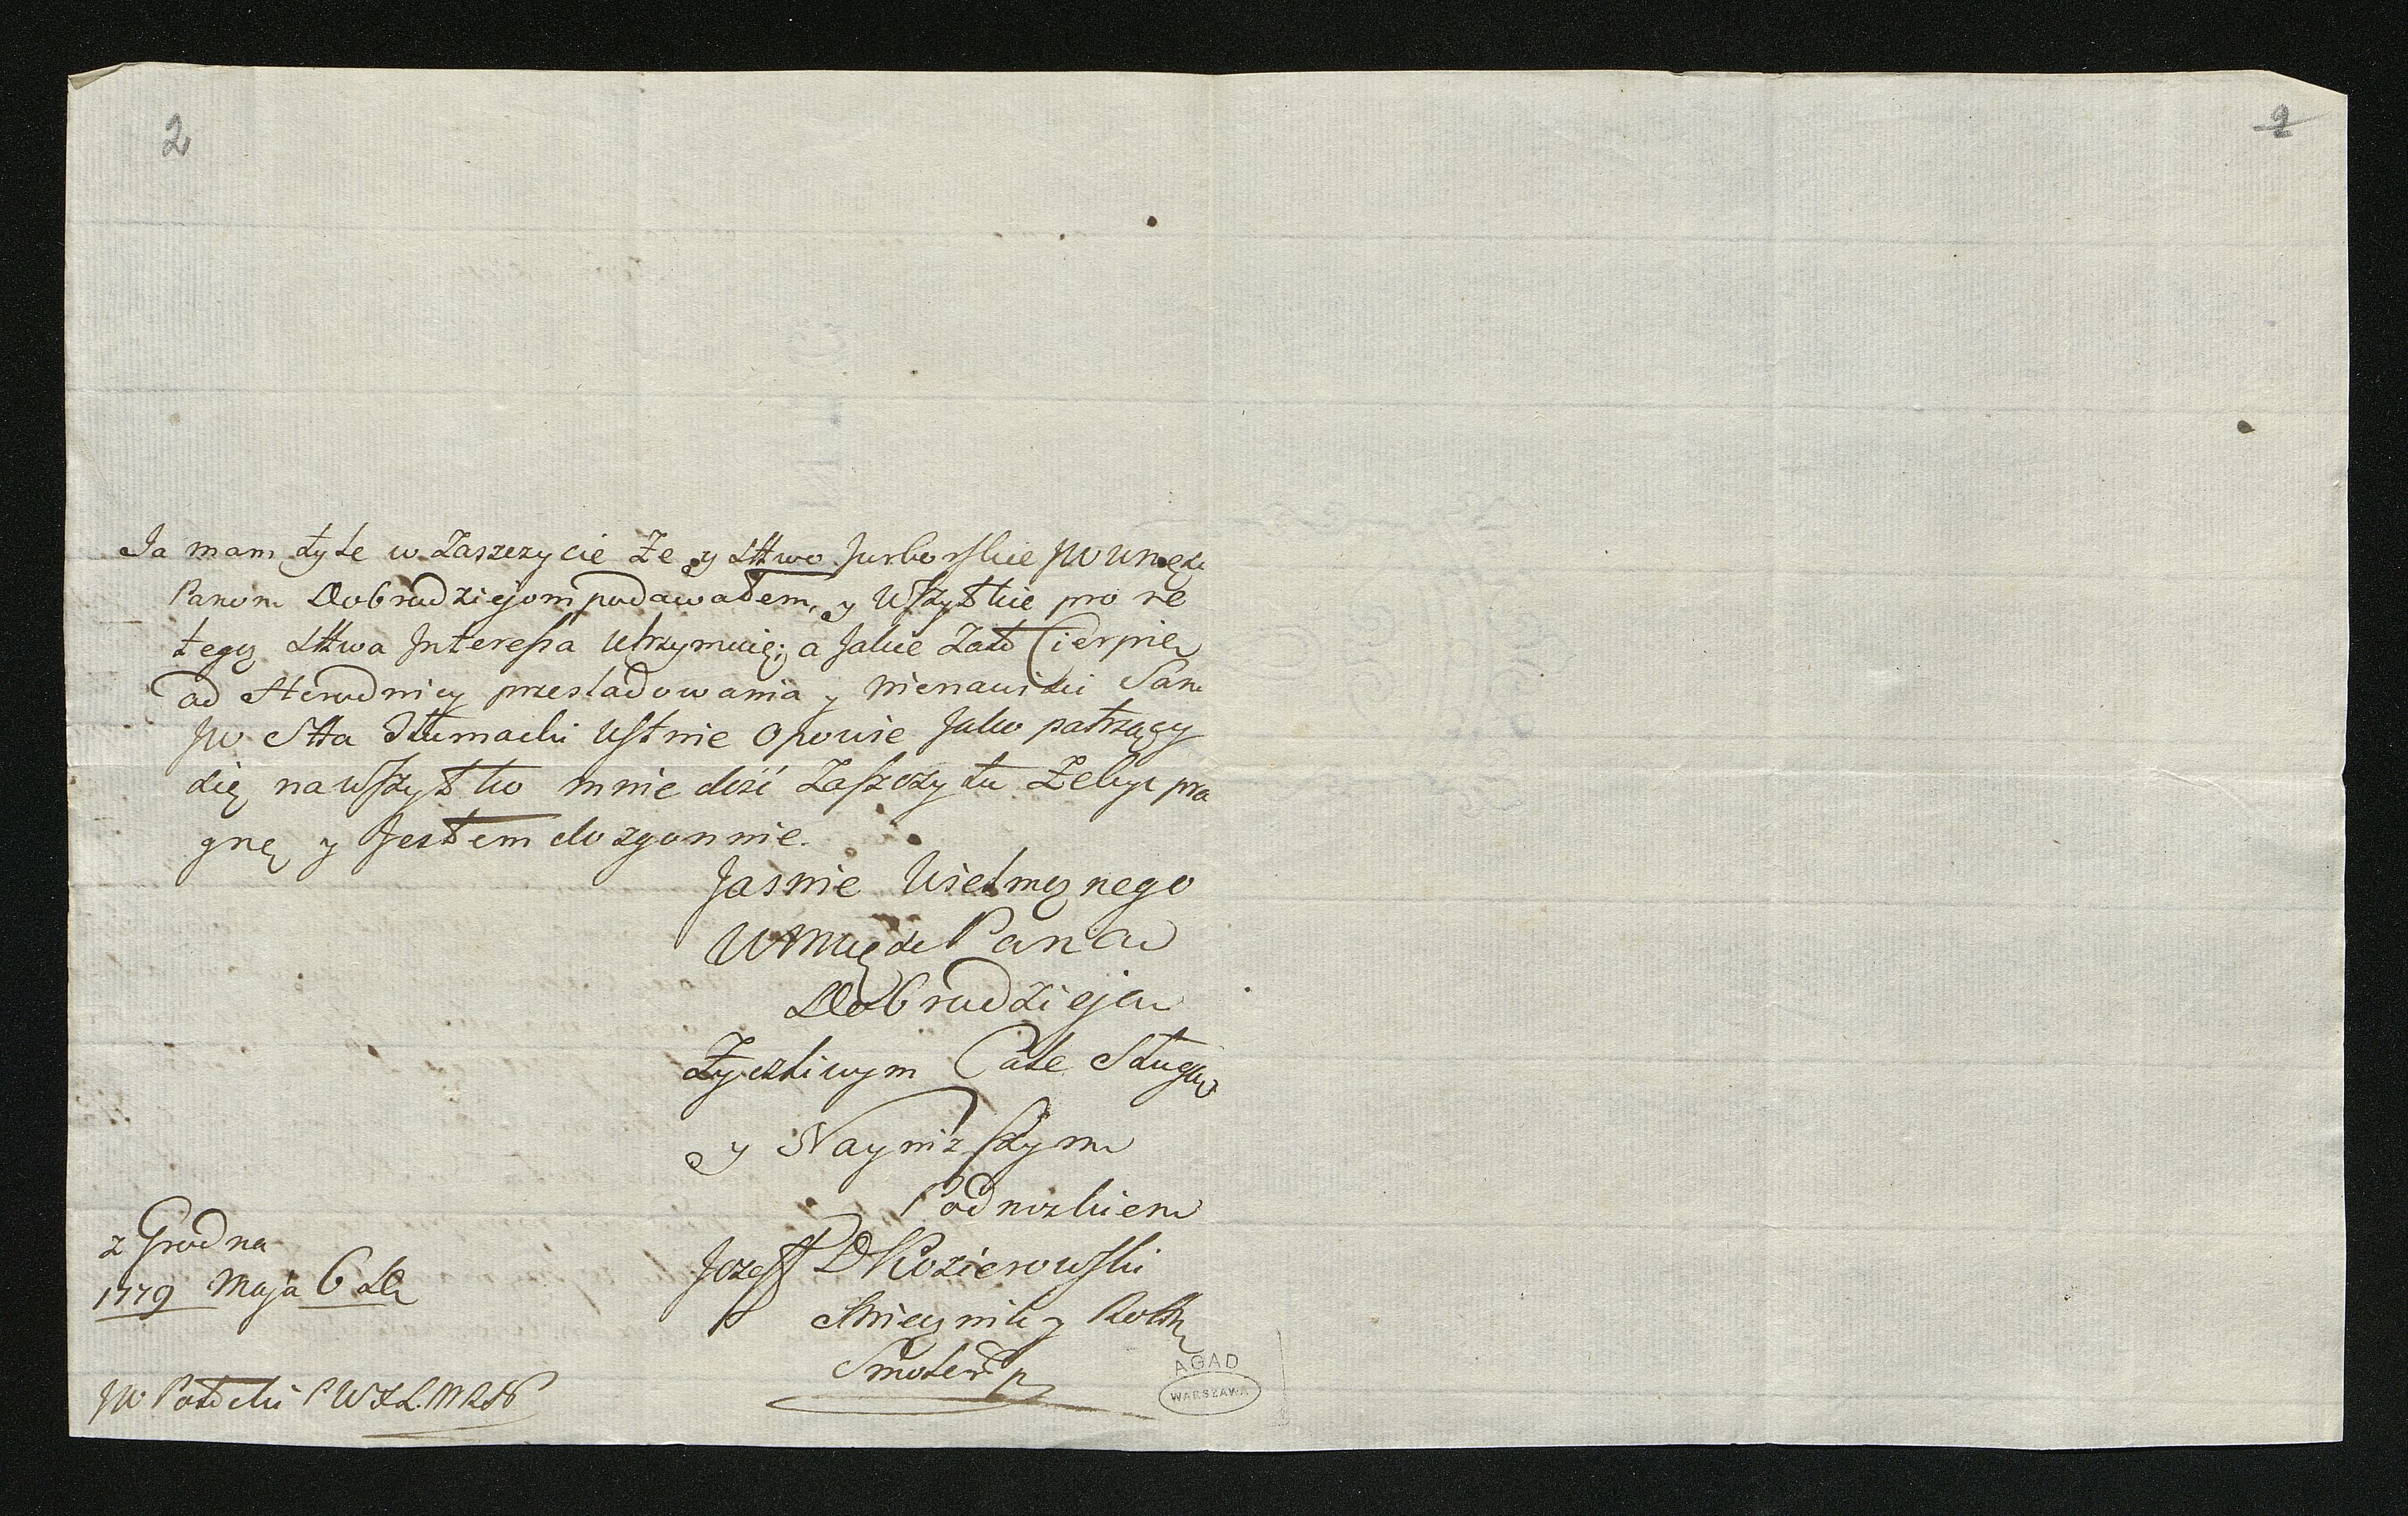 2
2
Ja mam tyle w Zaszczycie Że y Sttwo Jurborskie JW
Panom Dobrodziejom podawałem, y Wszystkie pro re
tego Sttwa Interessa Utrzymuię; a Jakie Zato Cierpie
od przesladowania y nienawiści Sam
JW Stta Tłumacki Ustnie Opowie Jako patrzący
się na Wszystko mnie dość Zaszczytu Żebyc pra
gnę y Jestem dozgonnie.
Jasnie Wielmożnego
Pana
Dobrodzieja
Życzliwym Całe Sługą
y Nayniższym
Podnozkiem
Jozeff D Kozierowski
y Rottm
Smolen p
z Grodna
1779 Maja 6 d
JW Potocki
AGAD
WARSZAWA